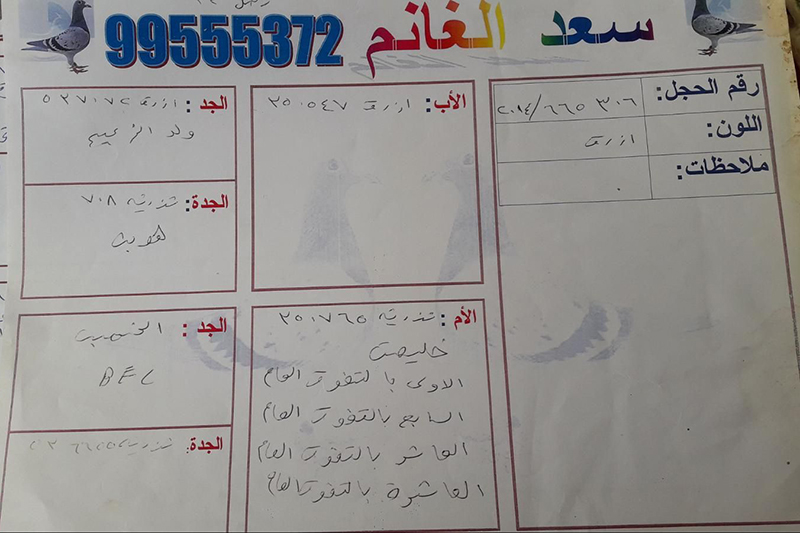 سعد الغانم 99555372
رقم الحجل: ٢٠١٤/٦٦٥٣٠٦
اللون: ازرق
ملاحظات:
الأب: ازرق ٣٥٠٥٤٧
الأم: شذريه ٣٥١٧٦٥
الاولى بالتفوق العام
السابع بالتفوق العام
العاشر بالتفوق العام
العاشرة بالتفوق العام
الجد: ازرق ٥٣٧٠٧٢
ولد الزعيم
الجدة: شذريه ٧٠٨
الجد:
BEL
الجدة: شذريه